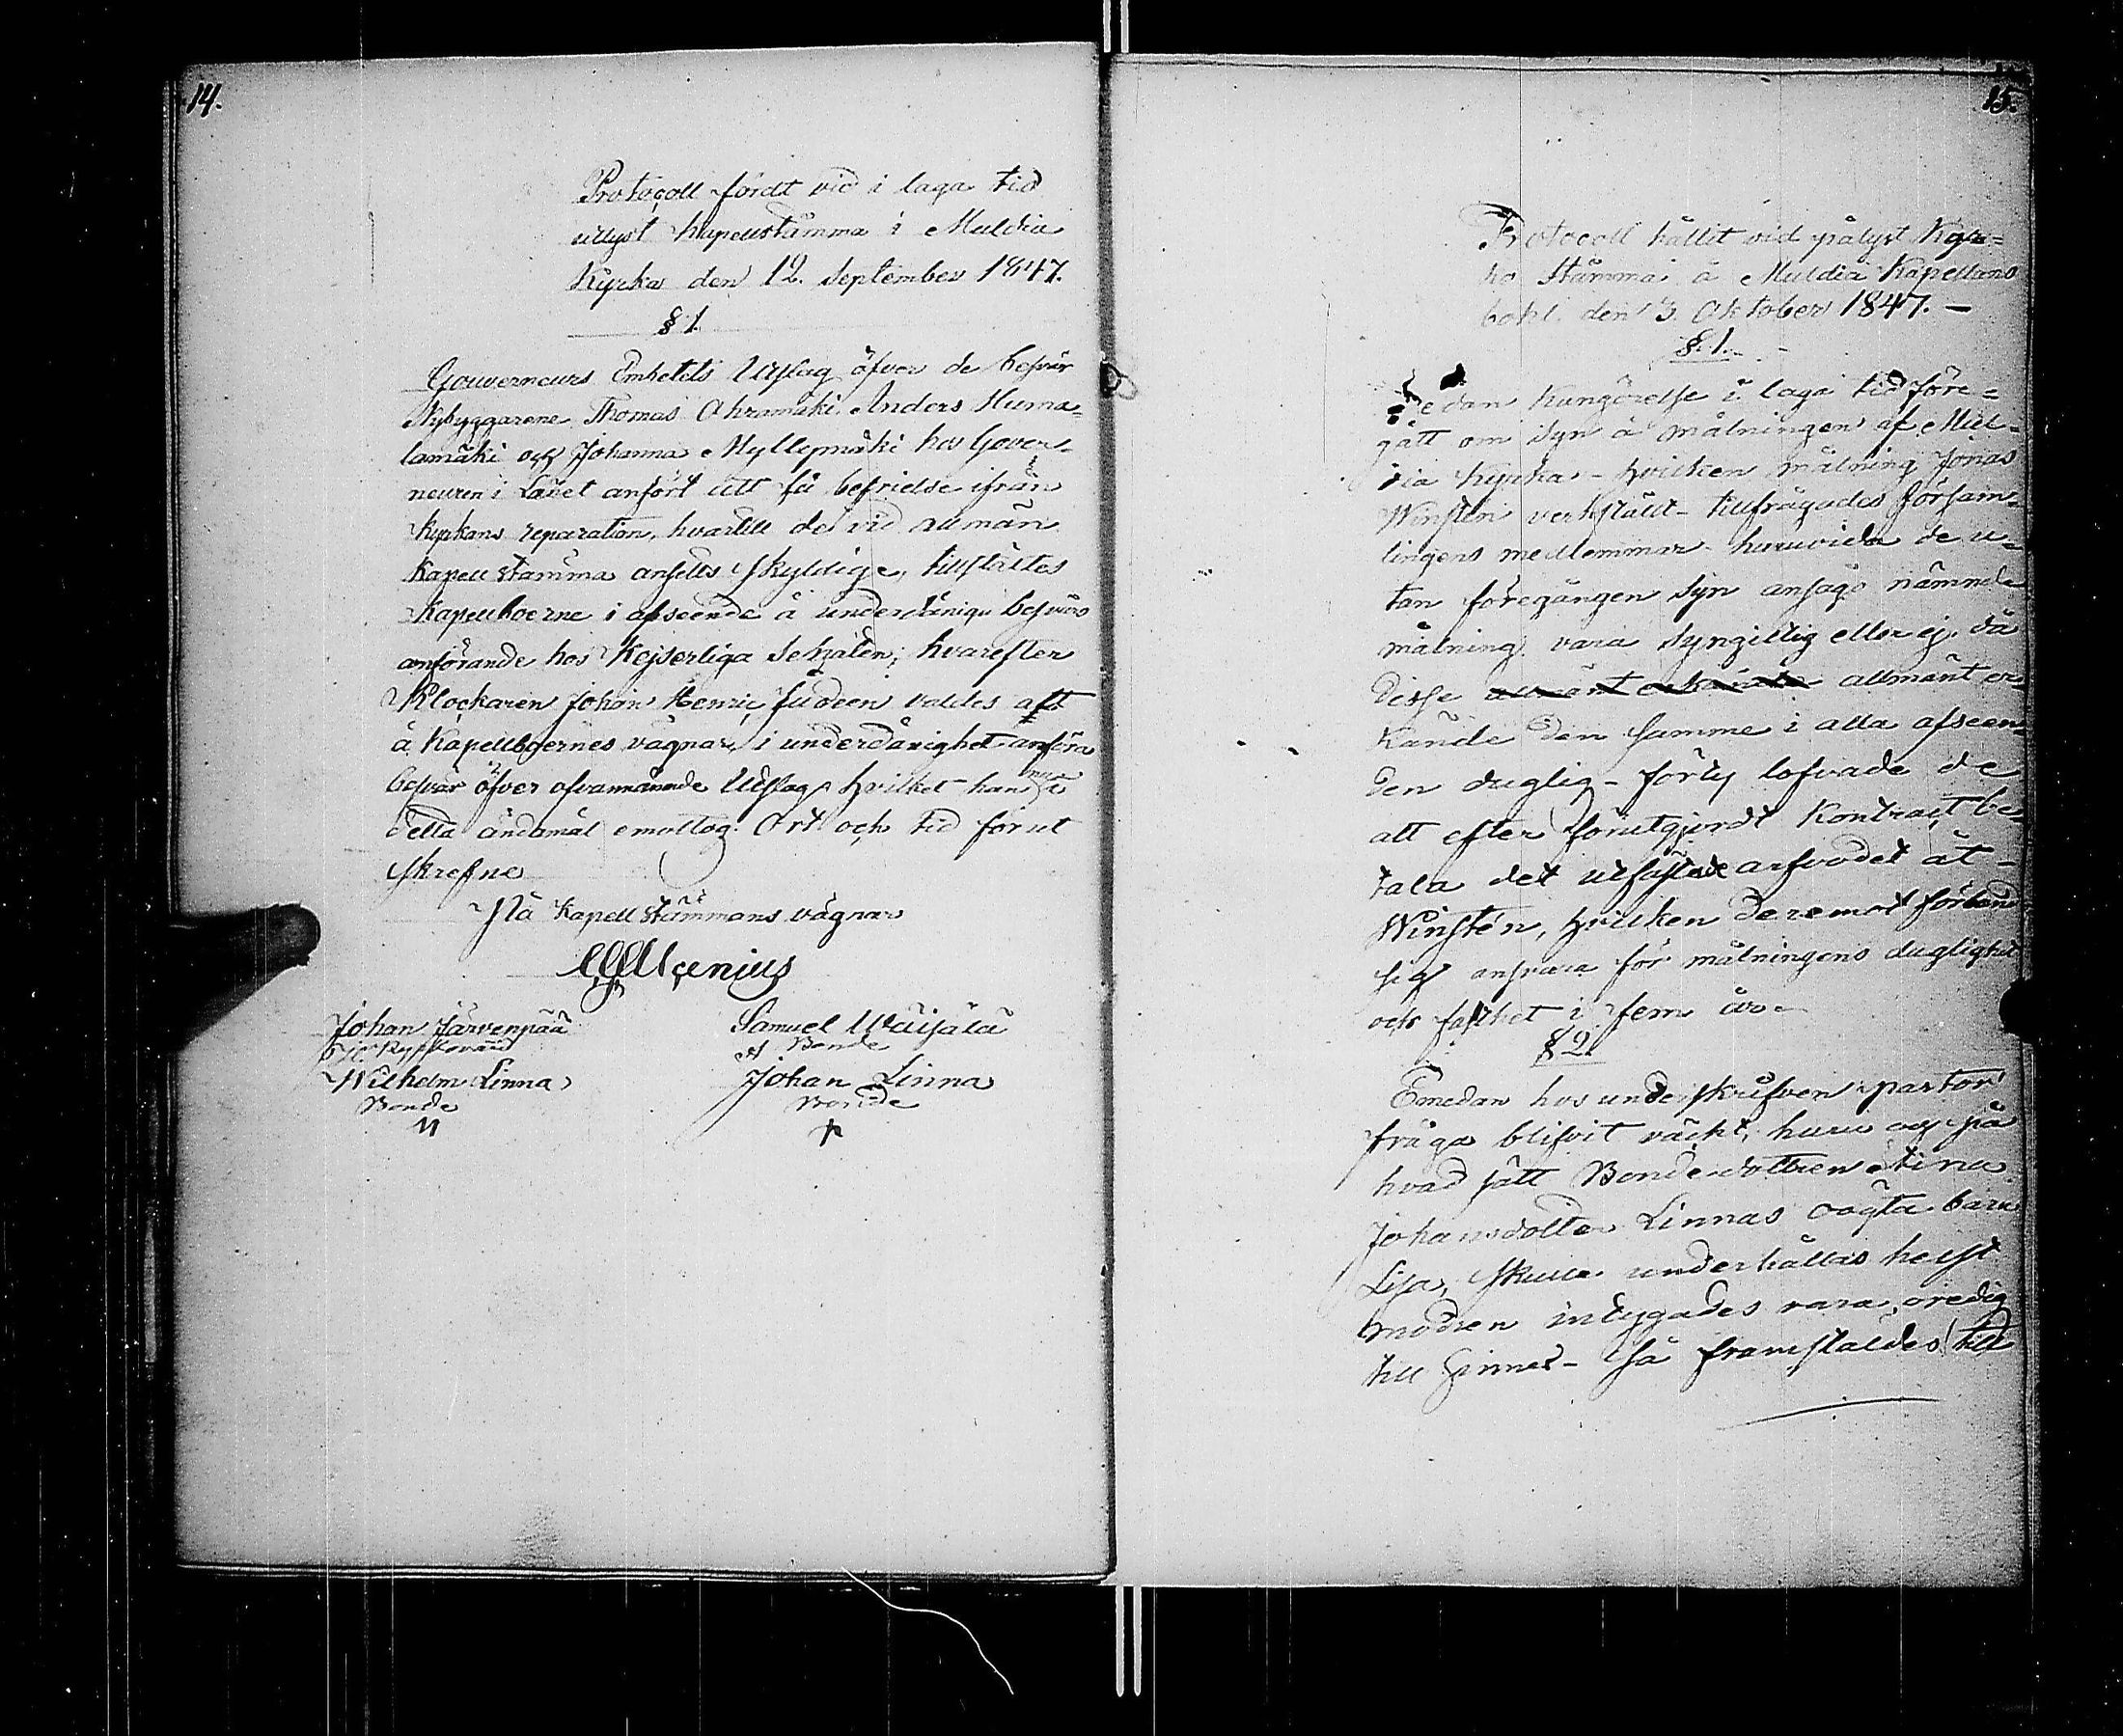 14.
Protocoll fördt vid i laga tid
utlyst Kapellstämma i Muldia
Kyrka den 12. September 1847.
§ 1.
Gouverneurs Embetets Utslag öfver de besvär
Nybyggarene Thomas Ahramäki, Anders Huma-
lamäki och Johanna Myllymäki hos Gover-
neuren i Länet anfört att få befrielse ifrån
Kyrkans reparation, hvartill de vid allmän
Kapell stämma ansetts skyldige, tillstältes
Kapellboerne i afseende å underdånige besvärs
anförande hos Kejserliga Senaten; hvarefter
Klockaren Johan Henric Judeen valdes att
å Kapellboernes vägnar, i underdånighet anföra
besvär öfver ofvannämnde Utslag, hvilket han
detta ändamål emottog. Ort och tid förut
skrefne
På Kapell stämmans vägnar
Johan Järvenpää
Samuel Wäisälä
Bonde
Wilhelm Linna
Johan Linna
Bonde
Bonde
15.
Protocoll hållit vid pålyst Kyr-
ko Stämma å Muldia Kapellans
bohl. den 3. Oktober 1847. —
§ 1.
Sedan Kungörelse i laga tid före-
gått om syn å målningen af Mul-
dia Kyrka - hvilken målning Jonas
Winsten verkstält - tillfrågades försam-
lingens medlemmar huruvida de u-
tan föregången syn ansågo nämnde
målning vara syngillig eller ej. då
desse allmänt erkände allmänt er-
kände den samme i alla afseen-
den duglig - förty lofvade de
att efter förutgjordt Kontract be-
tala det utfäste arfvodet åt
Winstén, hvilken deremot förband
sig ansvara för målningens duglighet
och fasthet i fem år -
§ 2.
Emedan hos underskrifven pastor
fråga blifvit väckt, huru och på
hvad sätt Bondedottren Stina
Johansdotter Linnas oägta barn
Lisa, skulle underhållas helst
modren intygades vara oredig
till sinnes - så framstäldes till